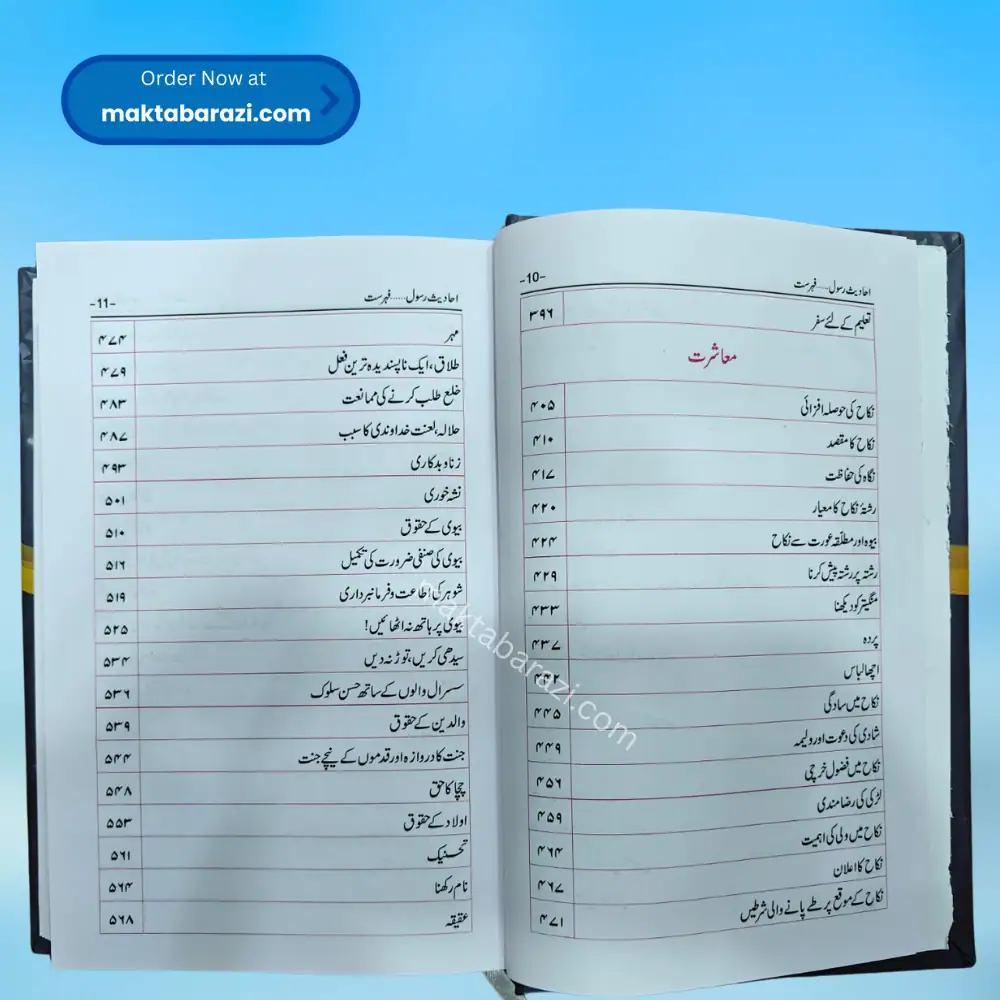 Order Now at
maktabarazi.com
-10- احادیث رسول.....فہرست
تعلیم کے لئے سفر ۳۹۶
معاشرت
نکاح کی حوصلہ افزائی ۴۰۵
نکاح کا مقصد ۴۱۰
نگاہ کی حفاظت ۴۱۷
رشتۂ نکاح کا معیار ۴۲۰
بیوہ اور مطلقہ عورت سے نکاح ۴۲۴
رشتہ پر رشتہ پیش کرنا ۴۲۹
منگیتر کو دیکھنا ۴۳۳
پردہ ۴۳۷
اچھا لباس ۴۴۲
نکاح میں سادگی ۴۴۵
شادی کی دعوت اور ولیمہ ۴۴۹
نکاح میں فضول خرچی ۴۵۶
لڑکی کی رضامندی ۴۵۹
نکاح میں ولی کی اہمیت ۴۶۴
نکاح کا اعلان ۴۶۷
نکاح کے موقع پر طے پانے والی شرطیں ۴۷۱
-11- احادیث رسول......فہرست
مہر ۴۷۴
طلاق، ایک ناپسندیدہ ترین فعل ۴۷۹
خلع طلب کرنے کی ممانعت ۴۸۳
حلالہ، لعنت خداوندی کا سبب ۴۸۷
زنا و بدکاری ۴۹۳
نشہ خوری ۵۰۱
بیوی کے حقوق ۵۱۰
بیوی کی صنفی ضرورت کی تکمیل ۵۱۶
شوہر کی اطاعت و فرمانبرداری ۵۱۹
بیوی پر ہاتھ نہ اٹھائیں! ۵۲۵
سیدھی کریں، توڑ نہ دیں ۵۳۴
سسرال والوں کے ساتھ حسن سلوک ۵۳۶
والدین کے حقوق ۵۳۹
جنت کا دروازہ اور قدموں کے نیچے جنت ۵۴۴
چچا کا حق ۵۴۸
اولاد کے حقوق ۵۵۳
تحنیک ۵۶۱
نام رکھنا ۵۶۴
عقیقہ ۵۶۸
maktabarazi.com